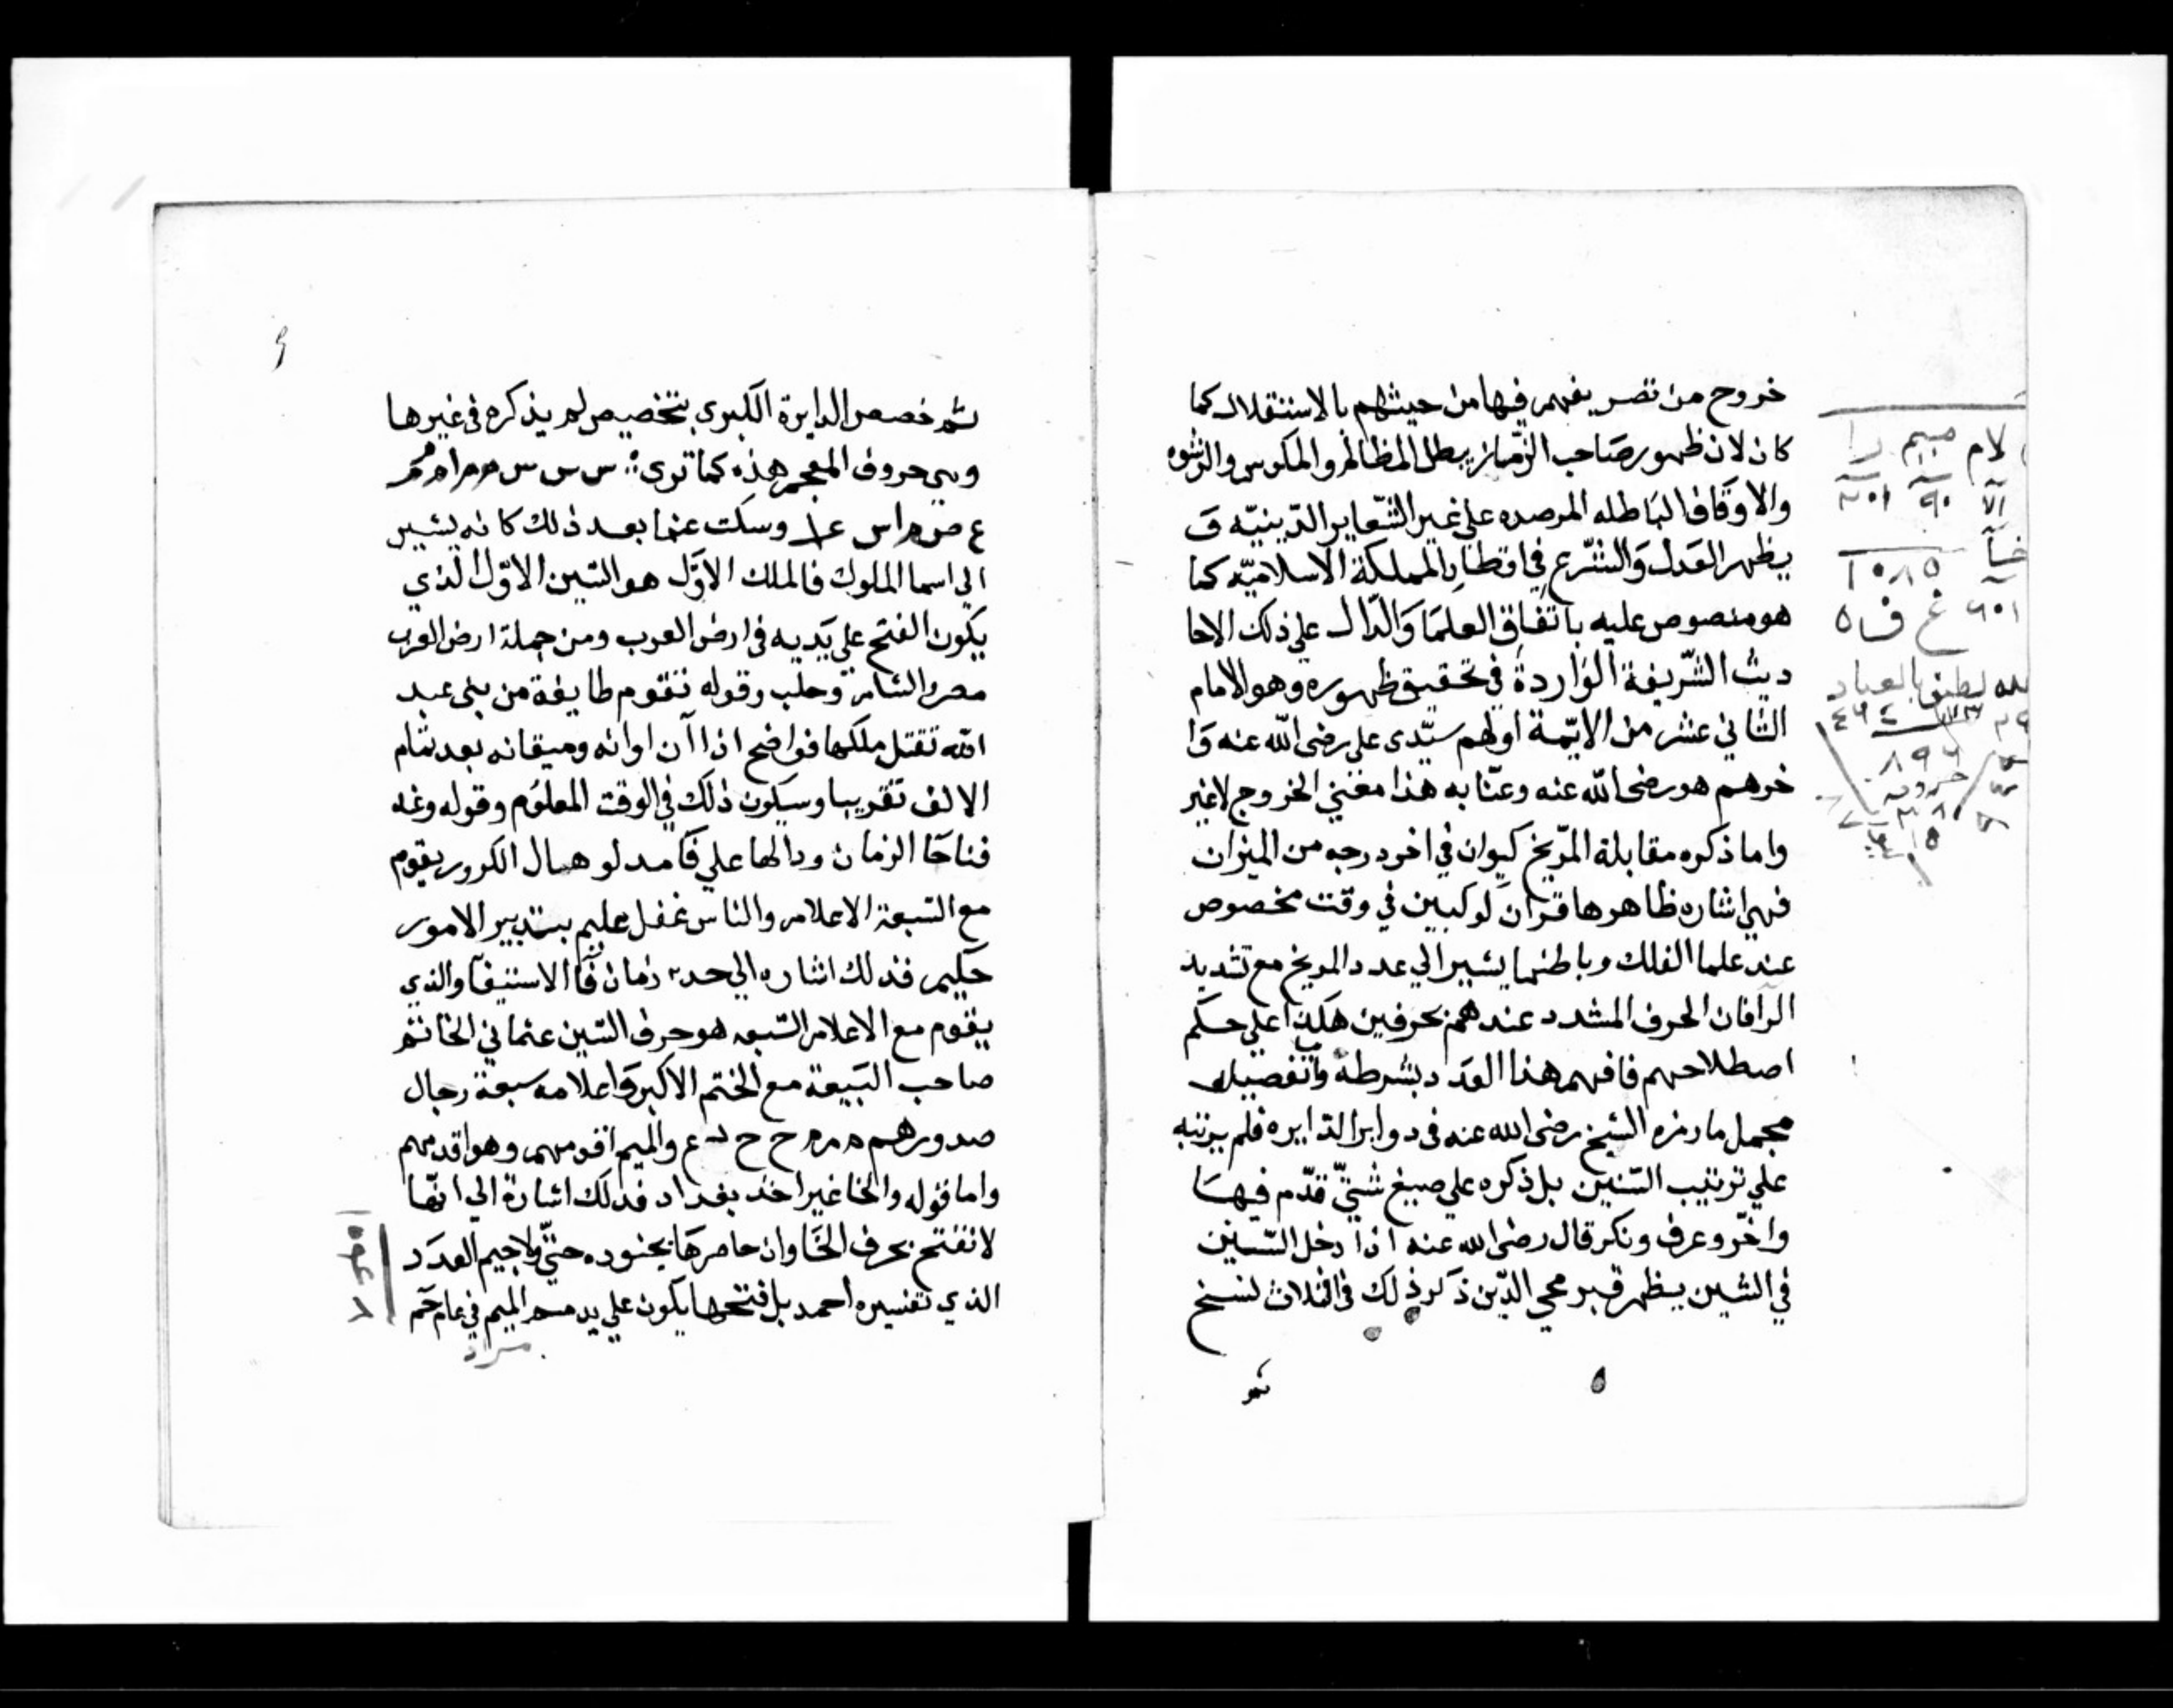 خروج من تصريفهم فيها من حيثهم بالاستقلال كما
كان لان ظهور صاحب الزمان يبطل المظالم والمكوس والرشوه
والاوقاف الباطله المرصده علي غير الشعاير الدينيه و
يظهر العدل والشرع في اقطار المملكة الاسلاميه كما
هو منصوص عليه باتفاق العلما والدال علي ذلك الاحا
ديث الشريفة الواردة في تحقيق ظهوره وهو الامام
الثاني عشر من الايمة اولهم سيدى على رضى الله عنه وا
خرهم هو رضى الله عنه وعنا به هذا معني الخروج لاغير
واما ذكره مقابلة المريخ كيوان في اخر درجه من الميزان
فهى اشاره ظاهرها قران لوكبين في وقت مخصوص
عند علما الفلك وباطنها يشير الي عدد المريخ مع تشديد
الرا فان الحرف المشدد عندهم بحرفين هكذا علي حكم
اصطلاحهم فافهم هذا العدد بشرطه وتفصيله
مجمل ما رمزه الشيخ رضى الله عنه فى دواير الدايره فلم يرتبه
علي ترتيب السنين بل ذكره علي صيغ شتي قدم فيها
واخر وعرف ونكر قال رضى الله عنه اذا دخل السين
في الشين يظهر قبر محي الدين ذكر ذلك فى الثلاث نسخ
ثم
لام ميم را
٩٠ ٢٠١
١٠٨٥
٦٠١ غ ف ٥
لطيف بالعباد
٨٩٦
ثم خصص الدايرة الكبرى بتخصيص لم يذكره فى غيرها
وهى حروف المعجم هذه كما ترى س س س م م ا م م
ع ص م ا س ع ا وسكت عنها بعد ذلك كانه يشير
الي اسما الملوك فالملك الاول هو السين الاول الذي
يكون الفتح علي يديه فى ارض العرب ومن جملة ارض العرب
مصر والشام وحلب وقوله تقوم طايفة من بنى عبد
الله تقتل ملكها فواضح اذا آن اوانه وميقاته بعد تمام
الالف تقريبا وسيكون ذلك في الوقت المعلوم وقوله وعند
فنا خا الزمان ودالها علي فا مدلو هال الكرور يقوم
مع السبعة الاعلام والناس غفل عليم بتدبير الامور
حكيم فذلك اشاره الي حد زمان فا الاستيفا والذي
يقوم مع الاعلام السبعه هو حرف السين عثماني الخاتم
صاحب البيعة مع الختم الاكبر واعلامه سبعة رجال
صدورهم م م م ح ح ع والميم اقومهم وهو اقدمهم
واما قوله والخا غير اخذ بغداد فذلك اشارة الي انها
لا تفتح بحرف الخا وان حاصرها بجنوده حتى ولا جيم العدد
الذي تفسيره احمد بل فتحها يكون علي يد الميم في عام
مراد